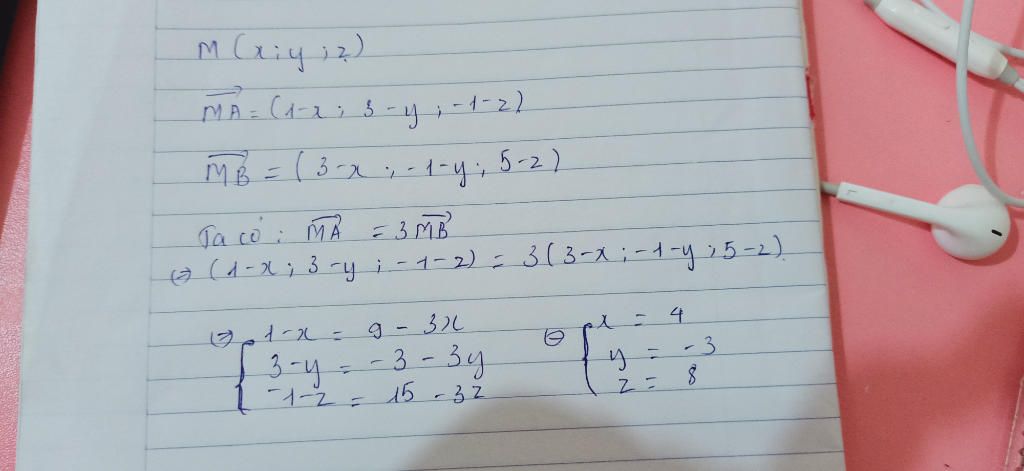 M (x; y; z)
→MA = (1-x; 3-y; -1-z)
→MB = (3-x; -1-y; 5-z)
Ta có: →MA = 3→MB
⇔ (1-x; 3-y; -1-z) = 3(3-x; -1-y; 5-z)
⇔ { 1-x = 9 - 3x ⇔ { x = 4
3-y = -3 - 3y y = -3
-1-z = 15 - 3z z = 8